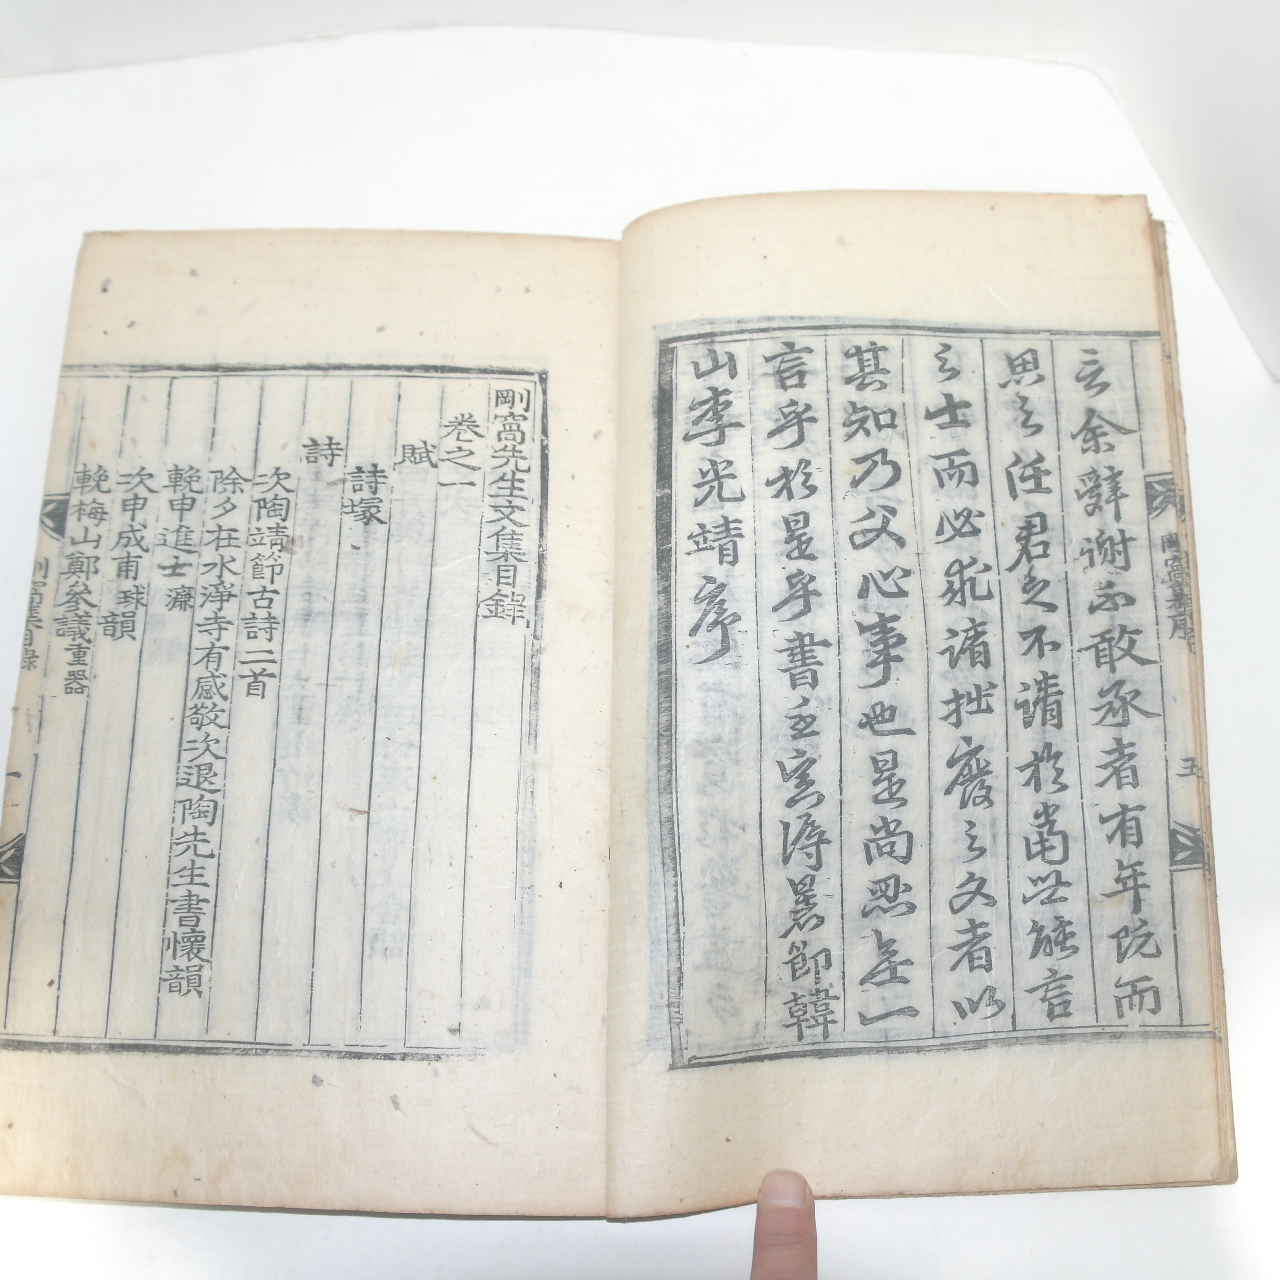 言余辭謝不敢承者有年院而
思之任君之不請於當世能言
之士而必求諸拙廢之文者以
其知乃父心事也是尚忍無一
言乎於是乎書玄黓涒暑節韓
山李光靖序
剛窩集序
五
剛窩先生文集目錄
卷之一
賦
詩塚
詩
次陶靖節古詩二首
除夕在水淨寺有感敬次退陶先生書懷韻
輓申進士濂
次申成甫球韻
輓梅山鄭參議重器
剛窩集目錄
一